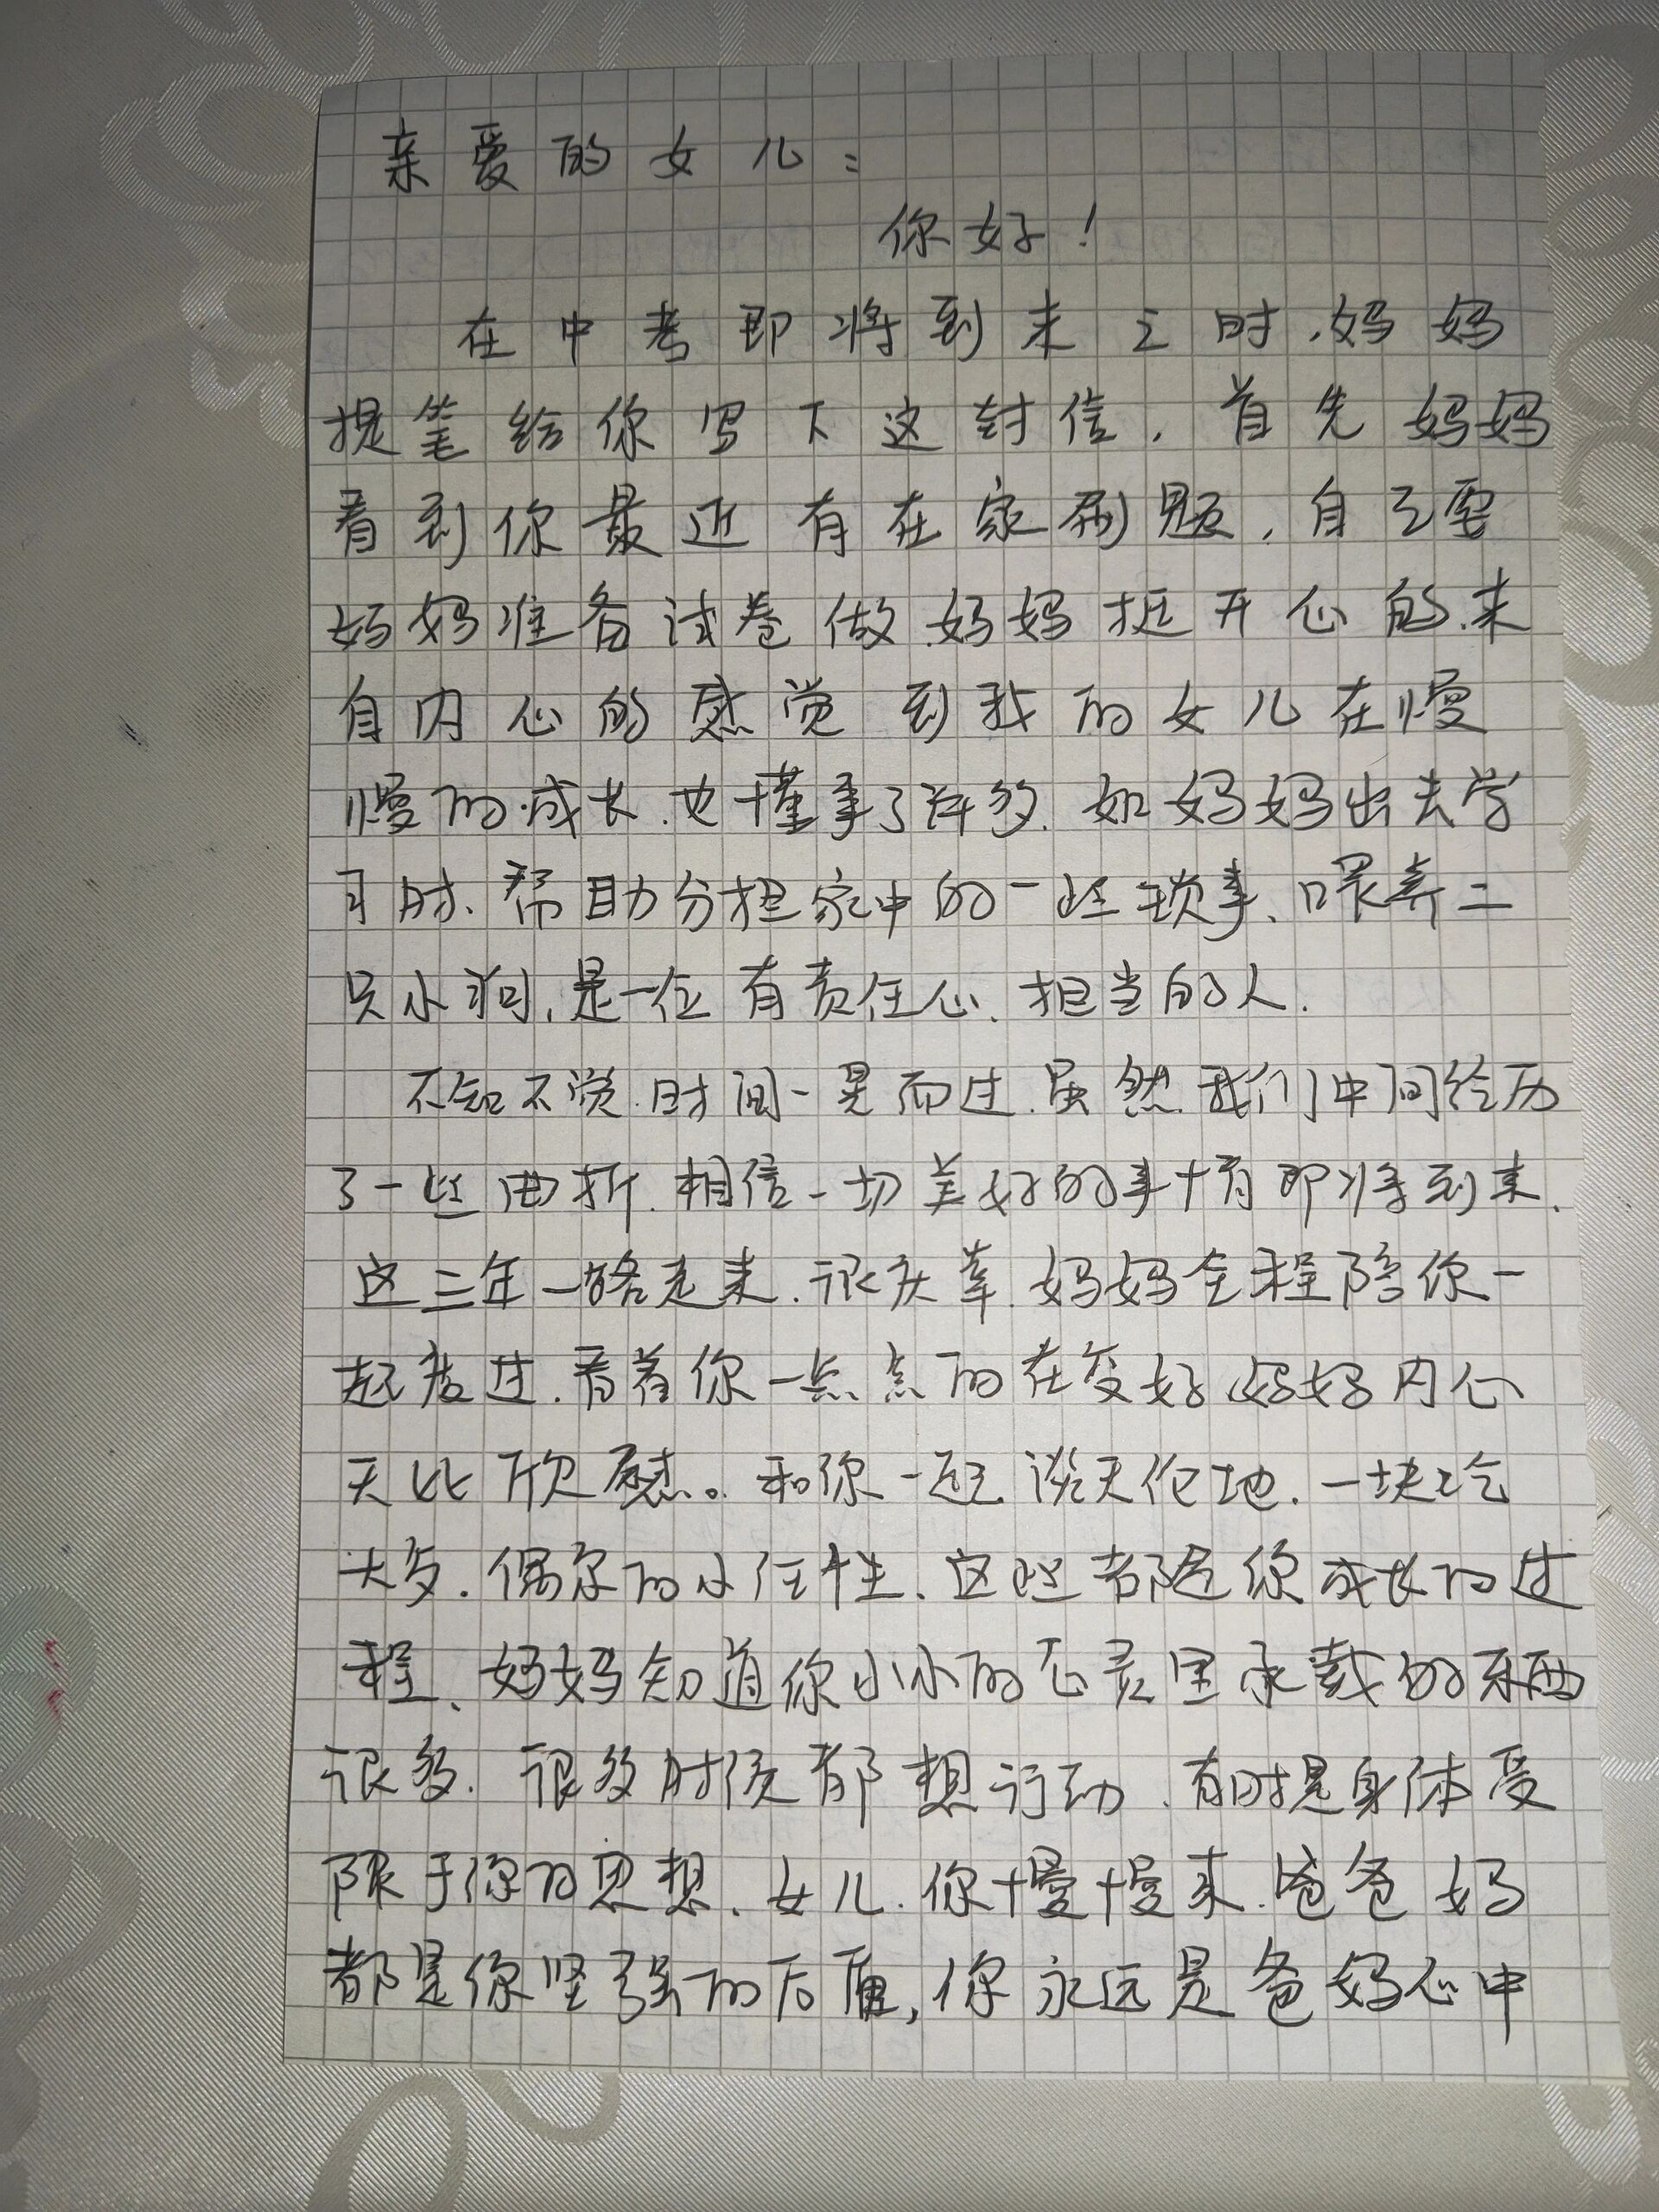 亲爱的女儿：
你好！
在中考即将到来之时,妈妈
提笔给你写下这封信,首先妈妈
看到你最近有在家刷题,自己要
妈妈准备试卷做.妈妈挺开心的.来
自内心的感觉到我的女儿在慢
慢的成长.也懂事了许多.如妈妈出去学
习时、帮助分担家中的一些琐事、喂养二
只小狗,是一位有责任心、担当的人.
不知不觉.时间一晃而过.虽然.我们中间经历
了一些曲折.相信一切美好的事情即将到来.
这三年一路走来.很庆幸.妈妈全程陪你一
起度过.看着你一点点的在变好.妈妈内心
无比欣慰。和你一起谈天论地.一块吃
大餐.偶尔的小任性、这些都是你成长的过
程、妈妈知道你小小的心灵里承载的东西
很多.很多时候都想行动.有时是身体受
限于你的思想.女儿.你慢慢来.爸爸妈
都是你坚强的后盾,你永远是爸妈心中